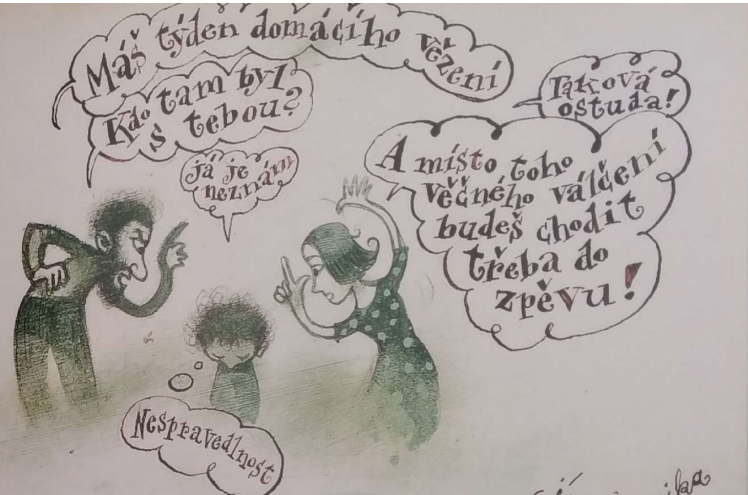 Máš týden domácího vězení
Kdo tam byl
s tebou?
já je
neznám
Taková
ostuda!
A místo toho
věčného válčení
budeš chodit
třeba do
zpěvu!
Nespravedlnost